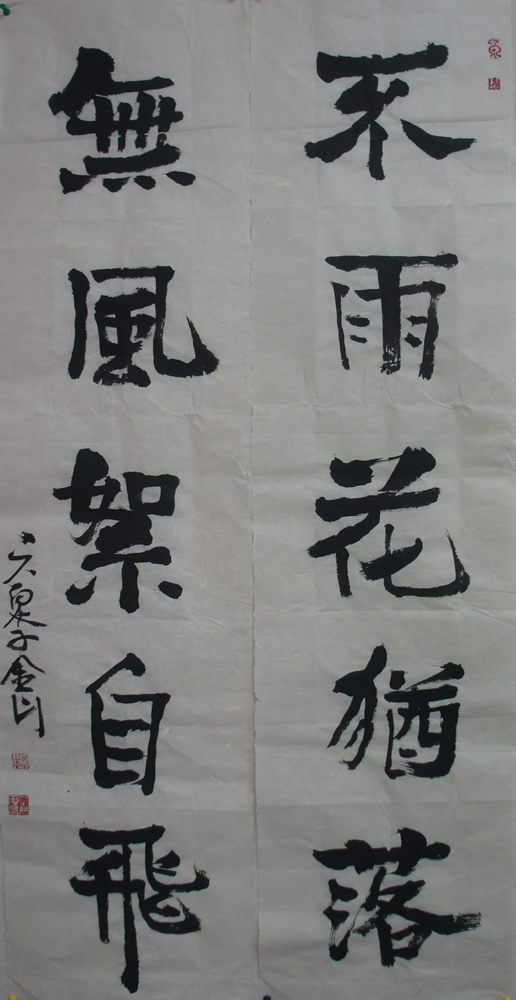 不雨花猶落
無風絮自飛
六泉子金山